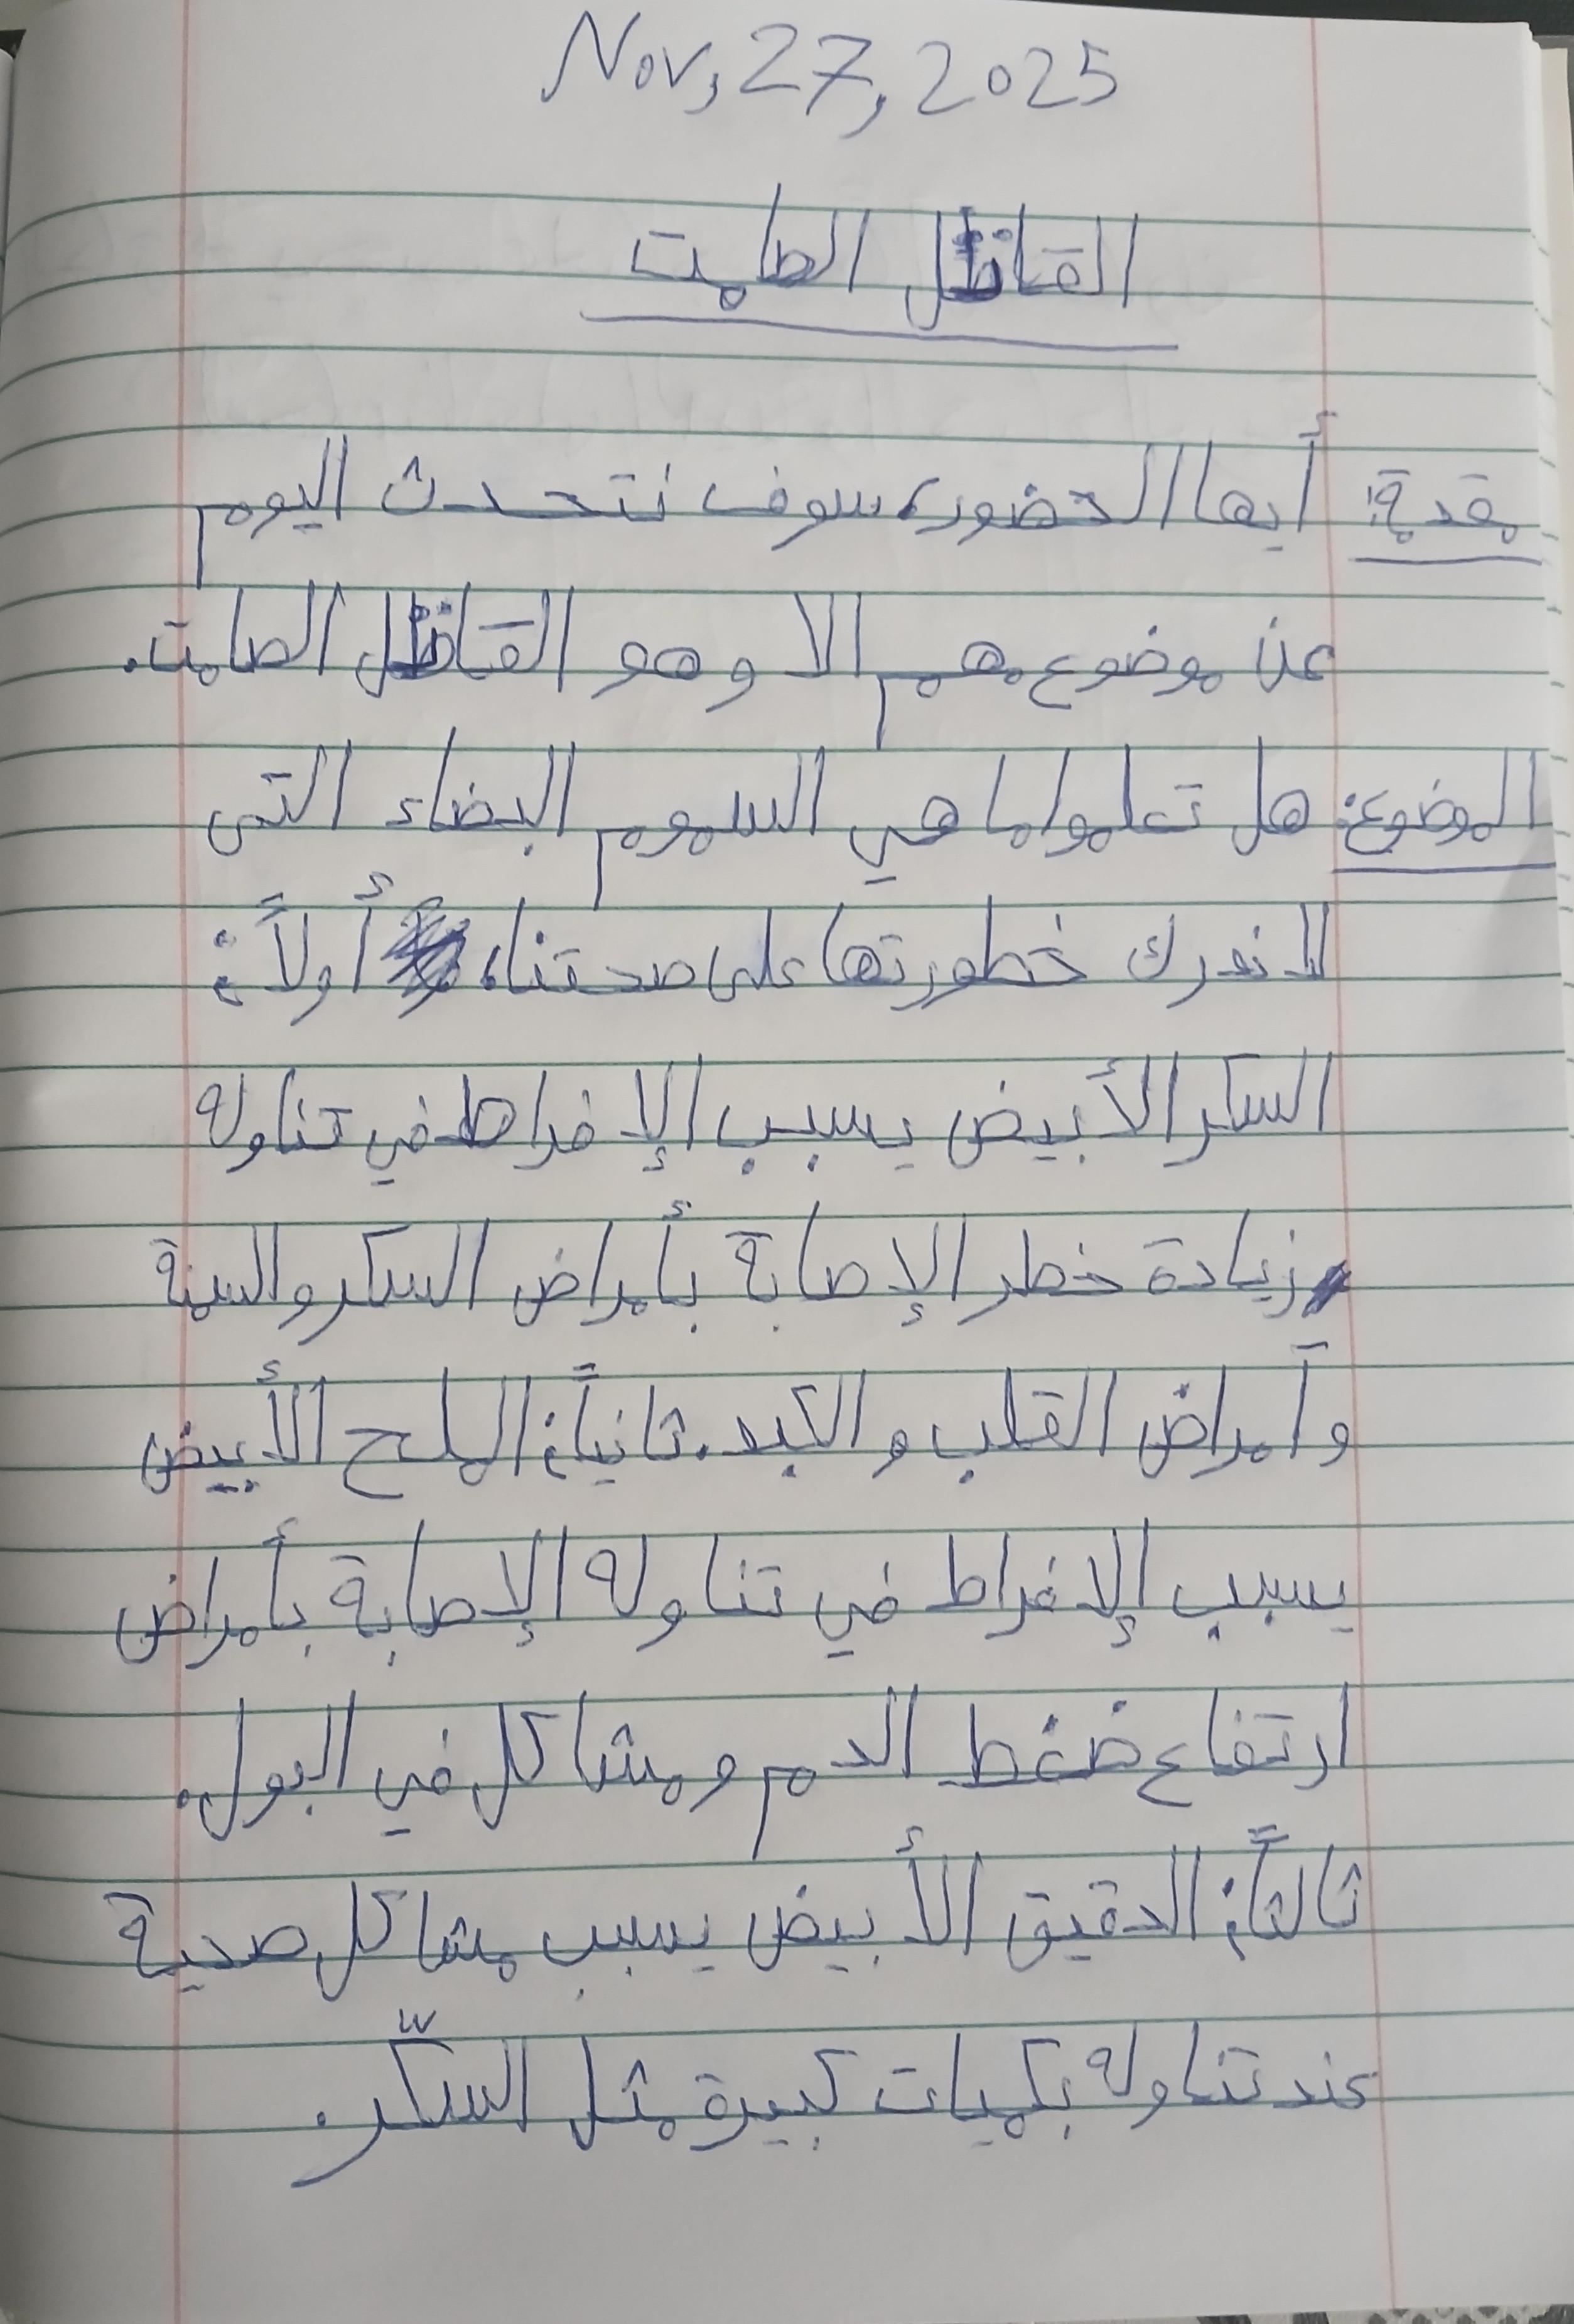 Nov, 27, 2025
القاتل الصامت
مقدمة: أيها الحضور، سوف نتحدث اليوم
عن موضوع مهم الا وهو القاتل الصامت.
الموضوع: هل تعلموا ما هي السموم البضاء التي
لا ندرك خطورتها على صحتنا، أولاً:
السكر الأبيض يسبب الإفراط في تناوله
زيادة خطر الإصابة بأمراض السكر والسمنة
وآمراض القلب والكبد. ثانياً: الملح الأبيض
يسبب الإفراط في تناوله الإصابة بأمراض
ارتفاع ضغط الدم ومشاكل في البول.
ثالثاً: الدقيق الأبيض يسبب مشاكل صحية
عند تناوله بكميات كبيرة مثل السكّر.